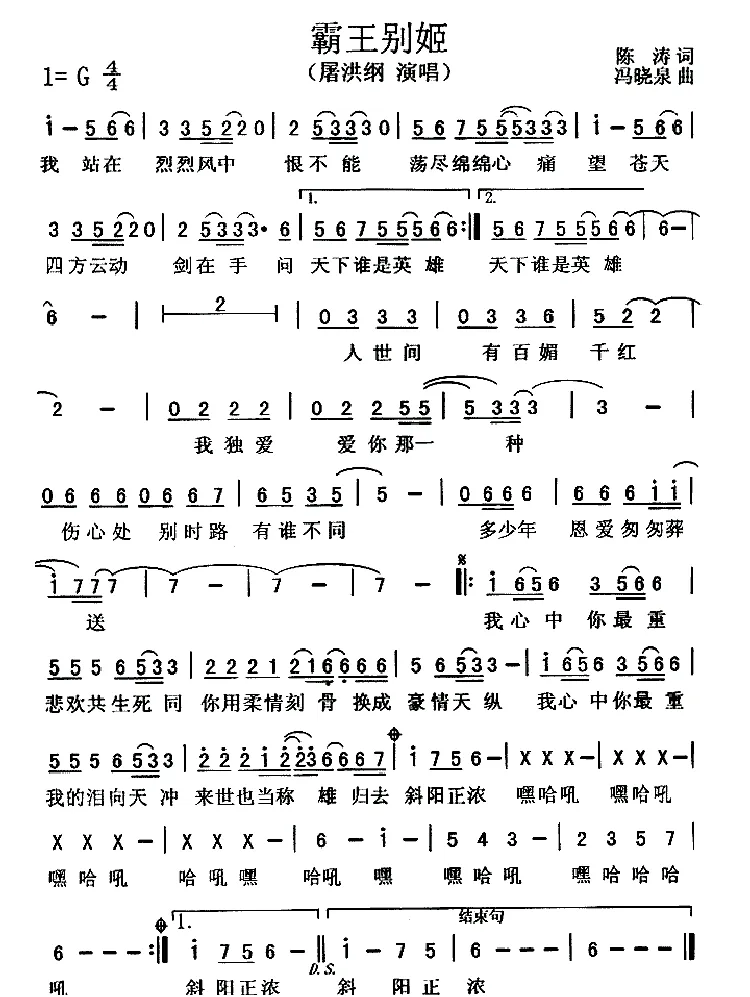 霸王别姬
（屠洪纲 演唱）
陈 涛 词
冯晓泉 曲
1= G 4/4
i - 5 6 6 | 3 3 5 2 2 0 | 2 5 3 3 3 0 | 5 6 7 5 5 5 3 3 3 | i - 5 6 6 |
我 站在 烈烈风中 恨不能 荡尽绵绵心 痛 望 苍天
1. 2.
3 3 5 2 2 0 | 2 5 3 3 3 · 6 | 5 6 7 5 5 5 6 6 :‖ 5 6 7 5 5 5 6 6 | 6 - |
四方云动 剑在 手 问 天下谁是英 雄 天下谁是英 雄
6 - | 2 | 0 3 3 3 | 0 3 3 6 | 5 2 2 |
人世间 有百媚 千红
2 - | 0 2 2 2 | 0 2 2 5 5 | 5 3 3 3 | 3 - |
我独爱 爱你那一 种
0 6 6 6 0 6 6 7 | 6 5 3 5 | 5 - | 0 6 6 6 | 6 6 6 i i |
伤心处 别时路 有谁不同 多少年 恩爱匆匆葬
i 7 7 7 | 7 - | 7 - | 7 - ‖: i 6 5 6 3 5 6 6 |
送 我心中 你最重
5 5 5 6 5 3 3 | 2 2 2 1 2 1 6 6 6 6 | 5 6 5 3 3 - | i 6 5 6 3 5 6 6 |
悲欢共生死 同 你用柔情刻 骨 换成 豪情天 纵 我心 中你最重
5 5 5 6 5 3 3 | 2 2 2 i 2 2 3 6 6 6 7 | i 7 5 6 - | X X X - | X X X - |
我的泪向天 冲 来世也当称 雄 归去 斜阳正浓 嘿哈吼 嘿哈吼
X X X - | X X X - | 6 - i - | 5 4 3 - | 2 3 5 7 |
嘿哈吼 哈吼嘿 哈吼 嘿 嘿哈吼 嘿哈哈哈
1. 结束句
6 - - - :‖ i 7 5 6 - ‖ i - 7 5 | 6 - - - | 6 - - - ‖
D.S.
吼 斜阳正浓 斜 阳正 浓